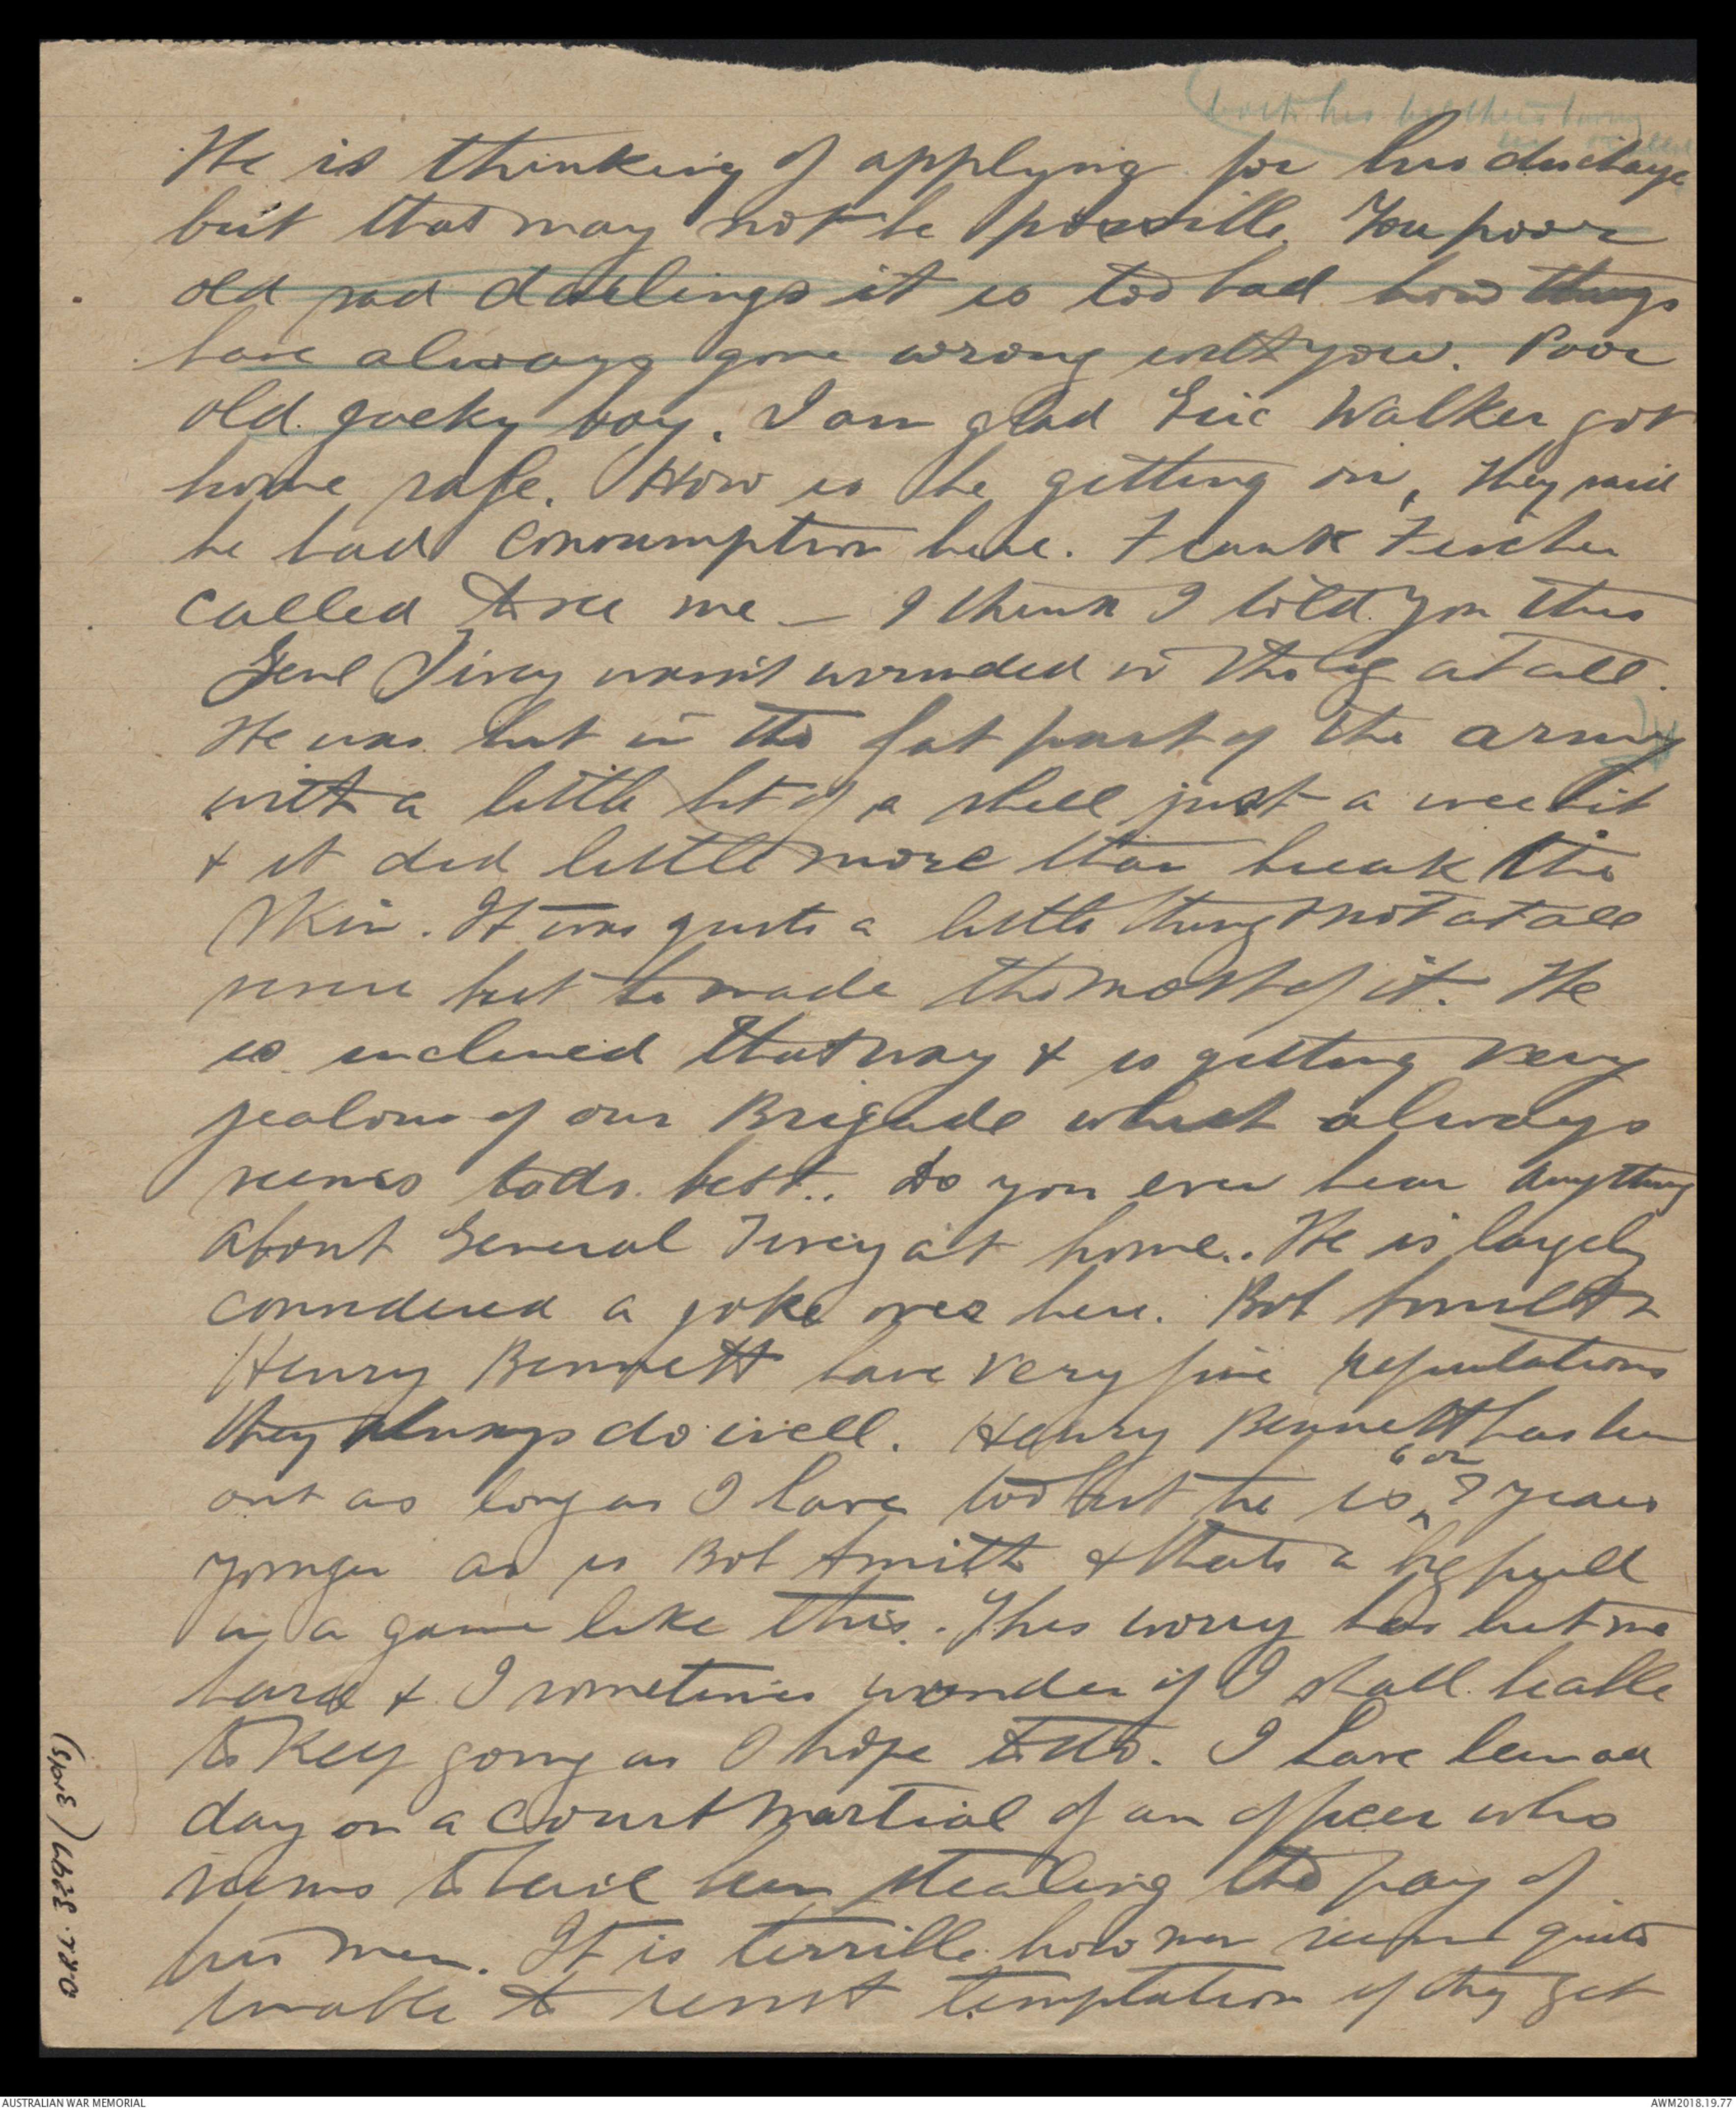 both his brothers being
He is thinking of applying for his discharge
but that may not be possible. You poor
old sad darlings it is too bad how things
have always gone wrong with you. Poor
old jocky boy. I am glad Eric Walker got
home safe. How is he getting on, they said
he had consumption here. Frank Fischer
called to see me – I think I told you this
Genl Tivey wasn't wounded in the leg at all.
He was hit in the fat part of the army
with a little bit of a shell just a wee bit
& it did little more than break the
skin. It was quite a little thing & not at all
severe but he made the most of it. He
is inclined that way & is getting very
jealous of our Brigade which always
seems to do best.. Do you ever hear anything
about General Tivey at home.. He is largely
considered a joke over here. Bob Smith &
Henry Bennett have very fine reputations
they always do well. Henry Bennett has been
out as long as I have too but he is
" or
? years
younger as is Bob Smith & thats a big pull
in a game like this. This worry has hit me
hard & I sometimes wonder if I shall be able
to keep going as I hope to do. I have been all
day on a Court Martial of an officer who
seems to have been stealing the pay of
his men. It is terrible how men seem quite
unable to resist temptation if they get
O.R.L. 3297 / (3rd S)
AUSTRALIAN WAR MEMORIAL
AWM2018.19.77